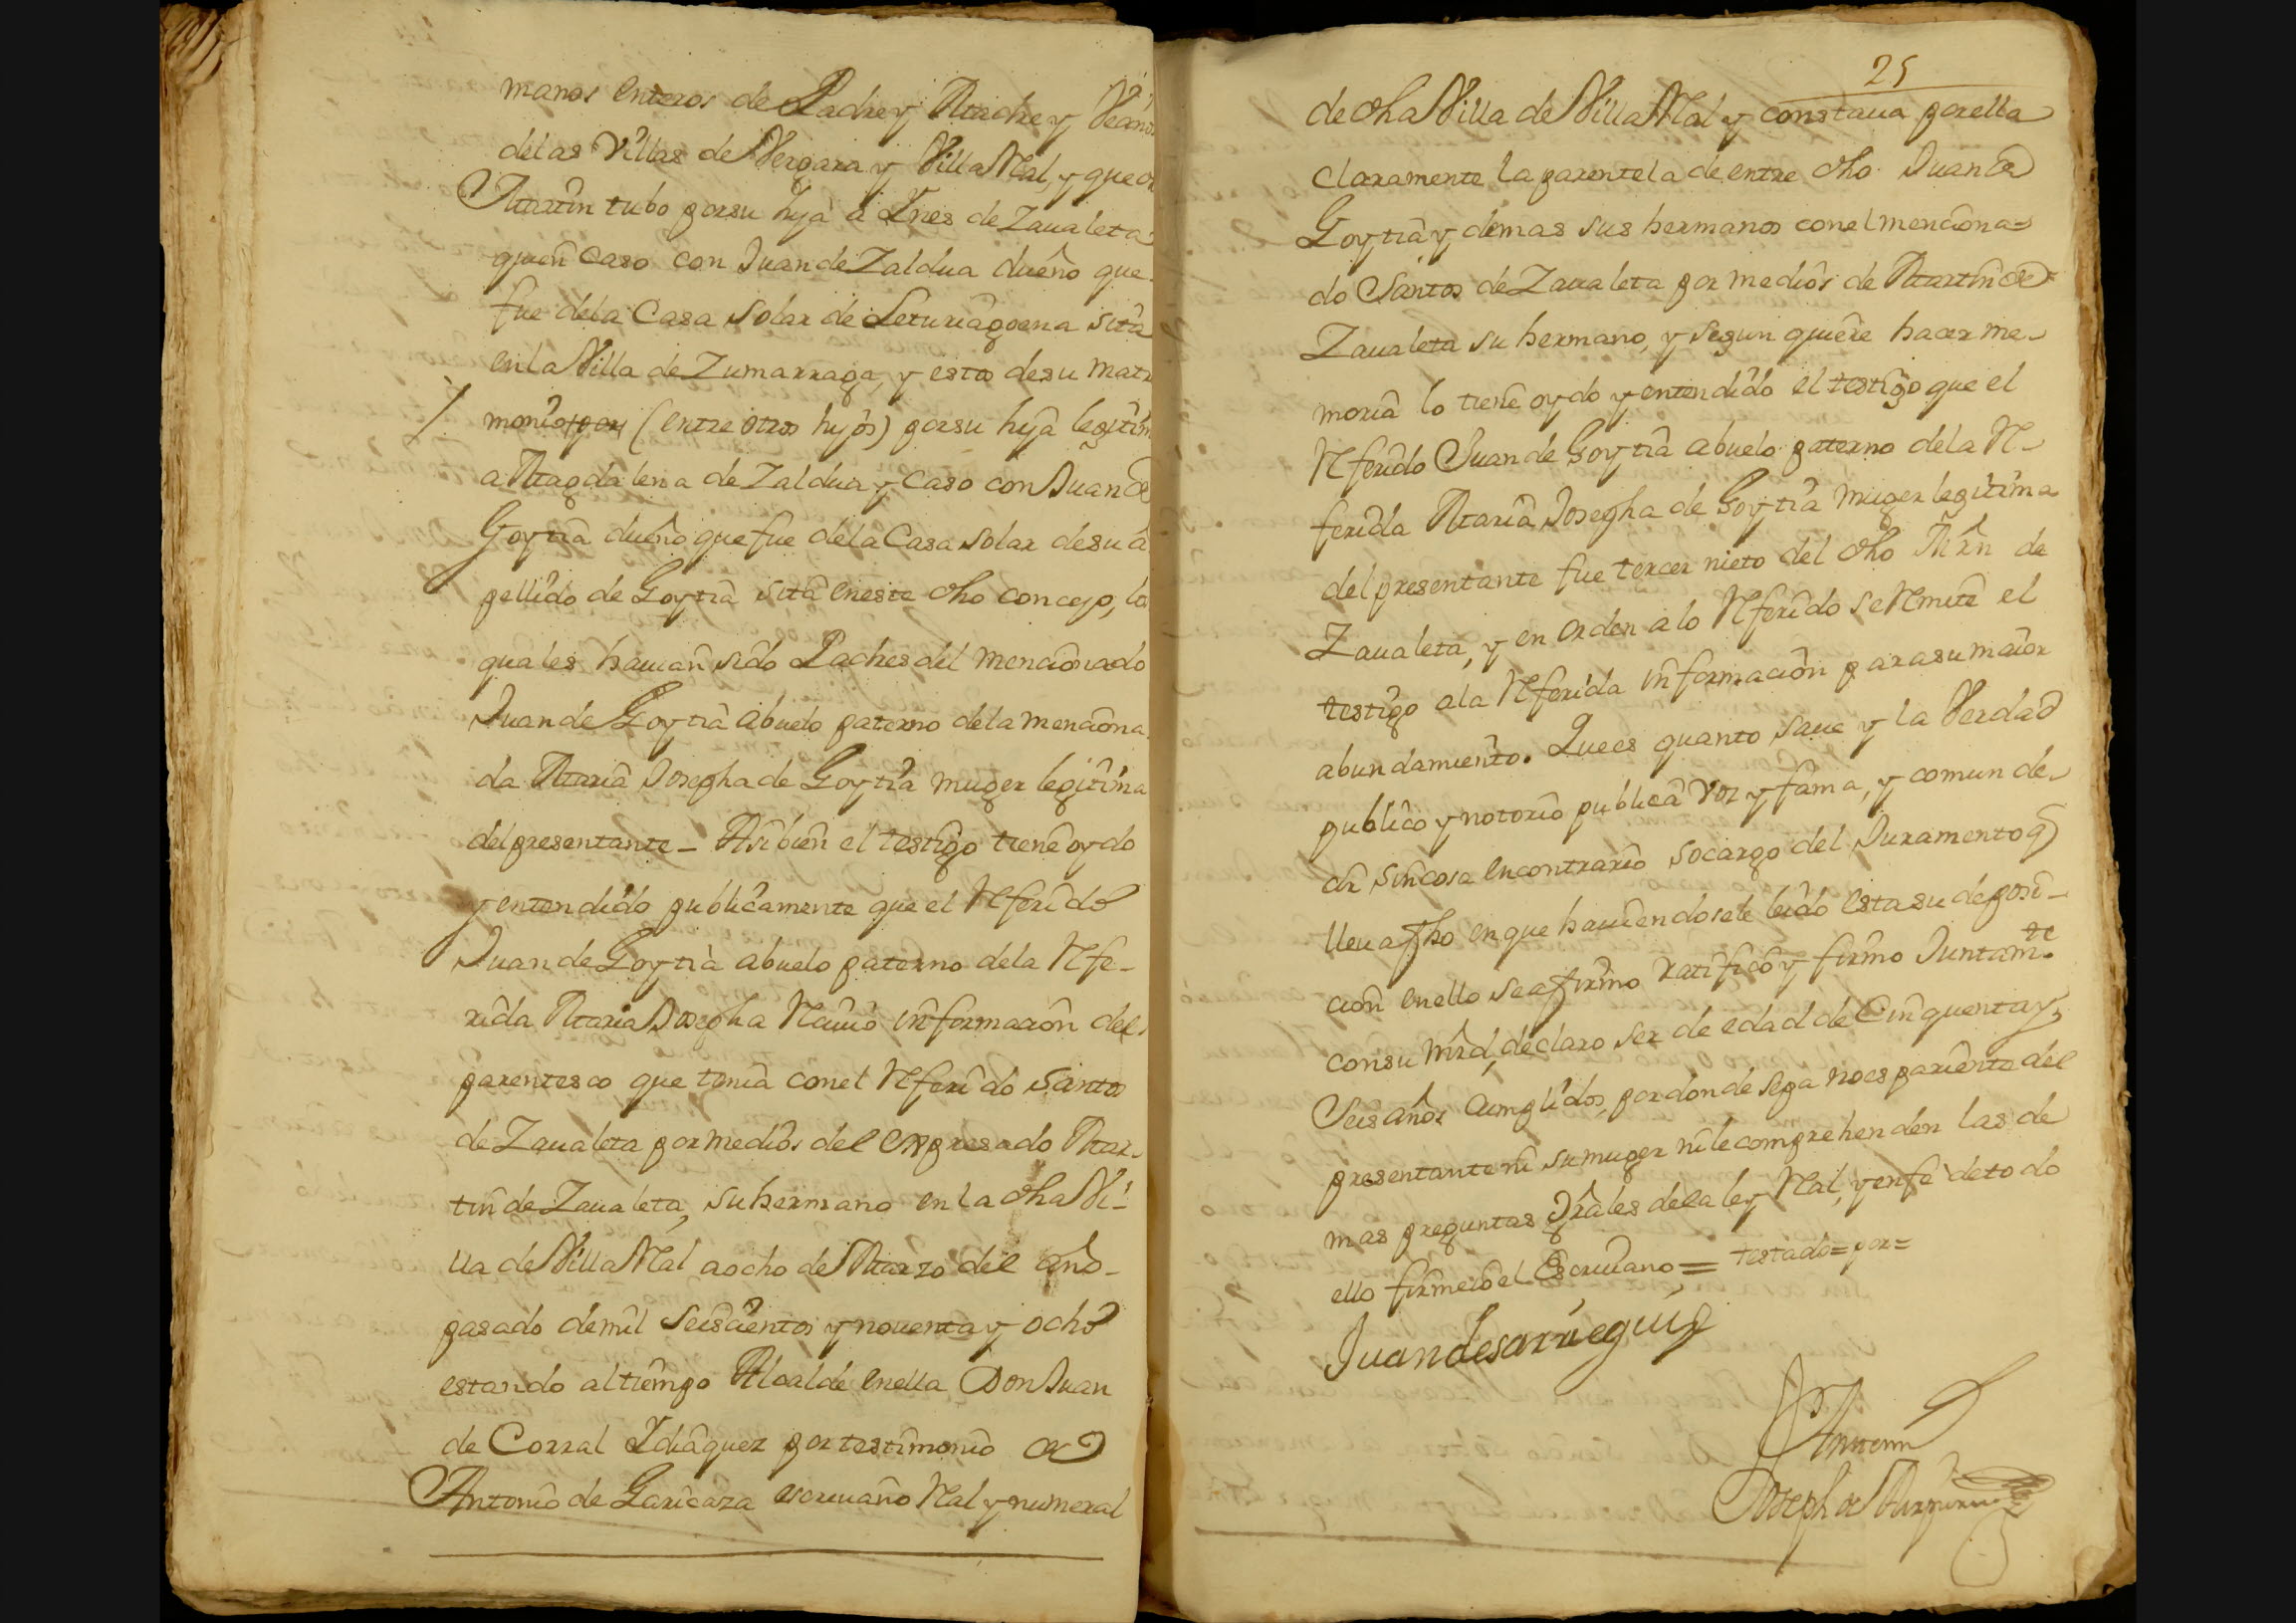 manos enteros de Padre y Madre y Vecinos
delas Villas de Vergara y Villa Rl, y que
Martin tubo por su hija a Ynes de Zaualeta
quien Caso con Juan de Zaldua dueño que
fue dela Casa Solar de Leturiagoena sita
en la Villa de Zumarraga, y estos de su matri
monio por (entre otros hijos) por su hija legitim
a Magdalena de Zaldua y Caso con Juan de
Goytia dueño que fue dela Casa Solar de su a
pellido de Goytia sita en este dho concejo, los
quales hauian sido Padres del mencionado
Juan de Goytia abuelo paterno dela menciona
da Maria Josepha de Goytia muger legitima
del presentante - Asi bien el testigo tiene oydo
y entendido publicamente que el Referido
Juan de Goytia abuelo paterno dela Refe-
rida Maria Josepha Reciuio informacion del
parentesco que tenia con el Referido Santos
de Zaualeta por medios del expresado Mar-
tin de Zaualeta, su hermano en la dha Vi-
lla de Villa Real a ocho de Marzo del año
pasado de mil Seiscientos y nouenta y ocho
estando al tiempo Alcalde en ella Don Juan
de Corral Ydiaquez por testimonio de
Antonio de Garicaza escriuano Real y numeral
25
de dha Villa de Villa Real y constaua por ella
Claramente la parentela de entre dho Juan de
Goytia y demas sus hermanos con el menciona=
do Santos de Zaualeta por medios de Martin de
Zaualeta su hermano, y segun quiere hacer me-
moria lo tiene oydo y entendido el testigo que el
Referido Juan de Goytia abuelo paterno dela Re-
ferida Maria Josepha de Goytia muger legitima
del presentante fue tercer nieto del dho Mrn de
Zaualeta, y en orden a lo Referido se Remite el
testigo a la Referida informacion para su maior
abundamiento. Que es quanto saue y la Verdad
publico y notorio publica voz y fama, y comun de-
cir sin cosa en contrario socargo del Juramento q
lleua fho en que hauiendosele leido esta su deposi-
cion en ello se afirmo ratifico y firmo Juntamte
con su mrd, declaro ser de edad de Cinquenta y
Seis años Cumplidos, por donde sepa no es pariente del
presentante ni su muger ni le comprehenden las de
mas preguntas Grales dela ley Real, y en fe de todo
ello firme io el Escriuano = testado = por =
Juan de sarriegui
Ante mi
Joseph de